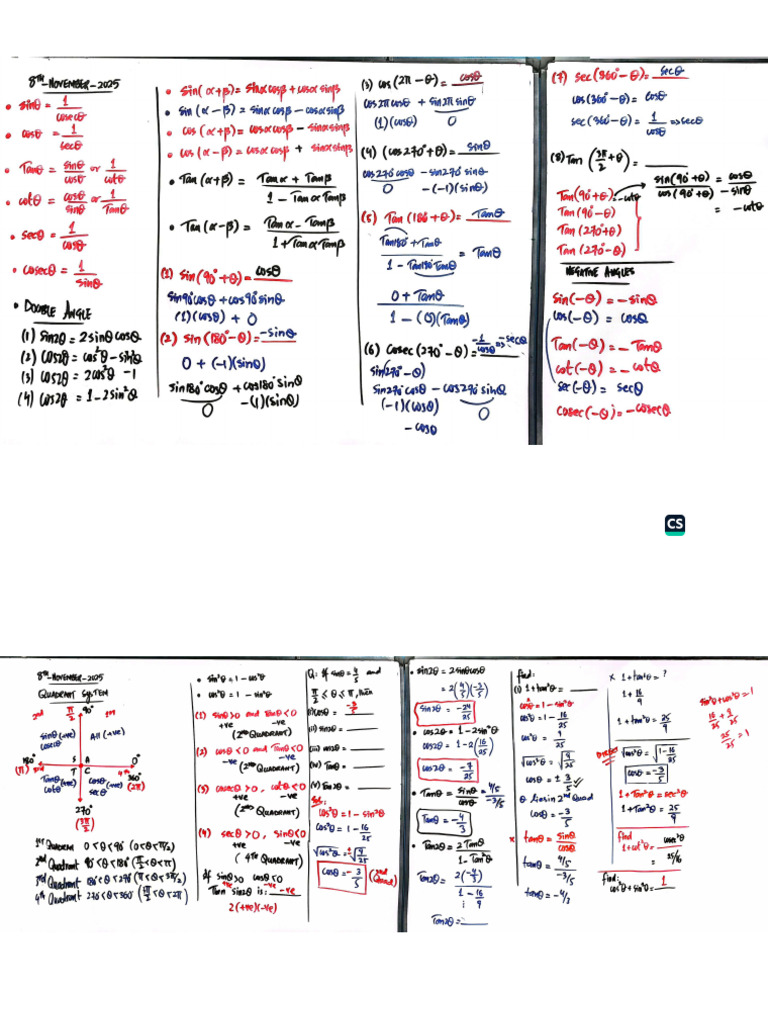 8TH-NOVEMBER-2025
• sinθ = 1/cosecθ
• cosθ = 1/secθ
• Tanθ = sinθ/cosθ or 1/cotθ
• cotθ = cosθ/sinθ or 1/Tanθ
• secθ = 1/cosθ
• cosecθ = 1/sinθ
• DOUBLE ANGLE
(1) sin2θ = 2sinθcosθ
(2) cos2θ = cos²θ - sin²θ
(3) cos2θ = 2cos²θ - 1
(4) cos2θ = 1 - 2sin²θ
• sin(α+β) = sinαcosβ + cosαsinβ
• sin(α-β) = sinαcosβ - cosαsinβ
• cos(α+β) = cosαcosβ - sinαsinβ
• cos(α-β) = cosαcosβ + sinαsinβ
• Tan(α+β) = Tanα + Tanβ / 1 - TanαTanβ
• Tan(α-β) = Tanα - Tanβ / 1 + TanαTanβ
(1) sin(90°+θ) = cosθ
sin90°cosθ + cos90°sinθ
(1)(cosθ) + 0
(2) sin(180°-θ) = -sinθ
0 + (-1)(sinθ)
sin180°cosθ + cos180°sinθ
0 -(1)(sinθ)
(3) cos(2π-θ) = cosθ
cos2πcosθ + sin2πsinθ
(1)(cosθ) 0
(4) (cos270°+θ) = sinθ
cos270°cosθ - sin270°sinθ
0 -(-1)(sinθ)
(5) Tan(180+θ) = Tanθ
Tan180° + Tanθ / 1 - Tan180°Tanθ = Tanθ
0 + Tanθ / 1 - (0)(Tanθ)
(6) Cosec(270°-θ) = -1/cosθ => -secθ
sin(270°-θ)
sin270°cosθ - cos270°sinθ
(-1)(cosθ) 0
- cosθ
(7) sec(360°-θ) = secθ
cos(360°-θ) = cosθ
sec(360°-θ) = 1/cosθ => secθ
(8) Tan(3π/2+θ) =
sin(90°+θ)/cos(90°+θ) = cosθ/-sinθ
= -cotθ
Tan(90°+θ) = -cotθ
Tan(90°-θ)
Tan(270°+θ)
Tan(270°-θ)
NEGATIVE ANGLES
sin(-θ) = -sinθ
cos(-θ) = cosθ
Tan(-θ) = -Tanθ
cot(-θ) = -cotθ
sec(-θ) = secθ
cosec(-θ) = -cosecθ
CS
8TH-NOVEMBER-2025
QUADRANT SYSTEM
2nd π/2 90° 1st
sinθ (+ve) All (+ve)
cosecθ
180° S A 0°
(π) 3rd T C 4th 360°
Tanθ (+ve) cosθ (+ve) (2π)
cotθ secθ
270°
(3π/2)
1st Quadrant 0<θ<90° (0<θ<π/2)
2nd Quadrant 90°<θ<180° (π/2<θ<π)
3rd Quadrant 180°<θ<270° (π<θ<3π/2)
4th Quadrant 270°<θ<360° (3π/2<θ<2π)
• sin²θ = 1 - cos²θ
• cos²θ = 1 - sin²θ
(1) sinθ>0 and Tanθ<0
+ve -ve
(2nd QUADRANT)
(2) cosθ<0 and Tanθ<0
-ve -ve
(2nd QUADRANT)
(3) cosecθ>0, cotθ<0
+ve -ve
(2nd QUADRANT)
(4) secθ>0, sinθ<0
+ve -ve
(4th QUADRANT)
If sinθ>0 cosθ<0
+ve -ve
Then sin2θ is: -ve
2(+ve)(-ve)
Q: If sinθ = 4/5 and
π/2 ≤ θ ≤ π, then
(i) cosθ = -3/5
(ii) sin2θ =
(iii) cos2θ =
(iv) Tanθ =
(v) Tan2θ =
Sol:
cos²θ = 1 - sin²θ
cos²θ = 1 - 16/25
√cos²θ = √9/25
cosθ = -3/5 (2nd Quad)
• sin2θ = 2sinθcosθ
= 2(4/5)(-3/5)
sin2θ = -24/25
• cos2θ = 1 - 2sin²θ
cos2θ = 1 - 2(16/25)
cos2θ = -7/25
• Tanθ = sinθ/cosθ = 4/5/-3/5
Tanθ = -4/3
• Tan2θ = 2Tanθ / 1 - Tan²θ
Tan2θ = 2(-4/3) / 1 - 16/9
Tan2θ =
find:
(i) 1+tan²θ =
cos²θ = 1 - sin²θ
cos²θ = 1 - 16/25
cos²θ = 9/25
√cos²θ = √9/25
cosθ = ± 3/5 ✓
θ lies in 2nd Quad
cosθ = -3/5
x tanθ = sinθ/cosθ
tanθ = 4/5/-3/5
tanθ = -4/3
x 1+tan²θ = ?
1 + 16/9
1+tan²θ = 25/9
√cos²θ = √1-16/25
cosθ = -3/5
1+tan²θ = sec²θ
1+tan²θ = 25/9
find
1+cot²θ = cosec²θ
= 25/16
find:
cos²θ + sin²θ = 1
sin²θ + cos²θ = 1
16/25 + 9/25
25/25 = 1